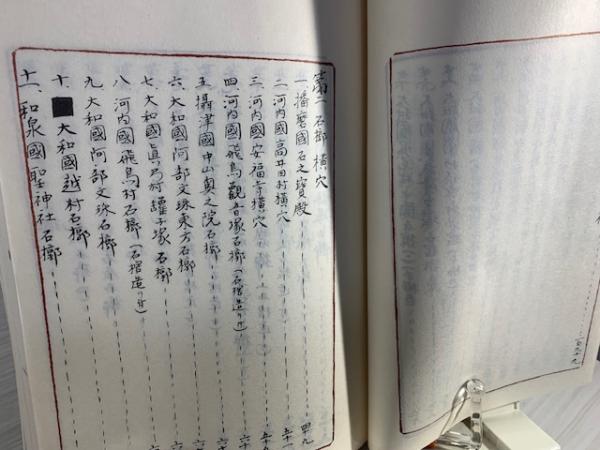 第二 石槨 横穴
一 播磨國石之寶殿 四十九
二 河内國高井田村横穴 五十一
三 河内國安福寺横穴 五十
四 河内國飛鳥觀音塚石槨（石櫃造り付） 五十
五 攝津國中山奥之院石槨 六
六 大和國阿部文珠東方石槨 六
七 大和國眞弓村鑵子塚石槨 六
八 河内國飛鳥村石槨（石櫃造り付） 六
九 大和國阿部文珠石槨 六
十 大和國越村石槨
十一 和泉國聖神社石槨
百九十九